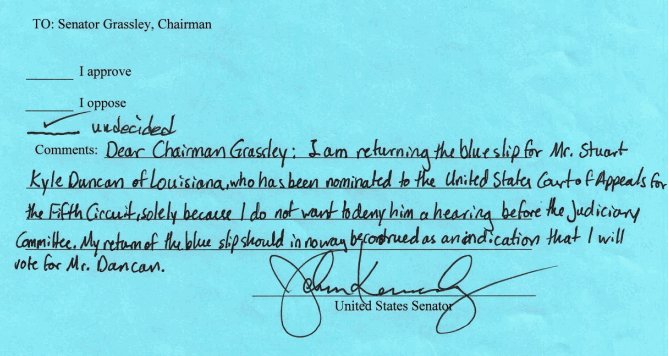 TO: Senator Grassley, Chairman
______ I approve
______ I oppose
✓ undecided
Comments: Dear Chairman Grassley: I am returning the blue slip for Mr. Stuart
Kyle Duncan of Louisiana, who has been nominated to the United States Court of Appeals for
the Fifth Circuit, solely because I do not want to deny him a hearing before the Judiciary
Committee. My return of the blue slip should in no way be construed as an indication that I will
vote for Mr. Duncan.
John Kennedy
United States Senator